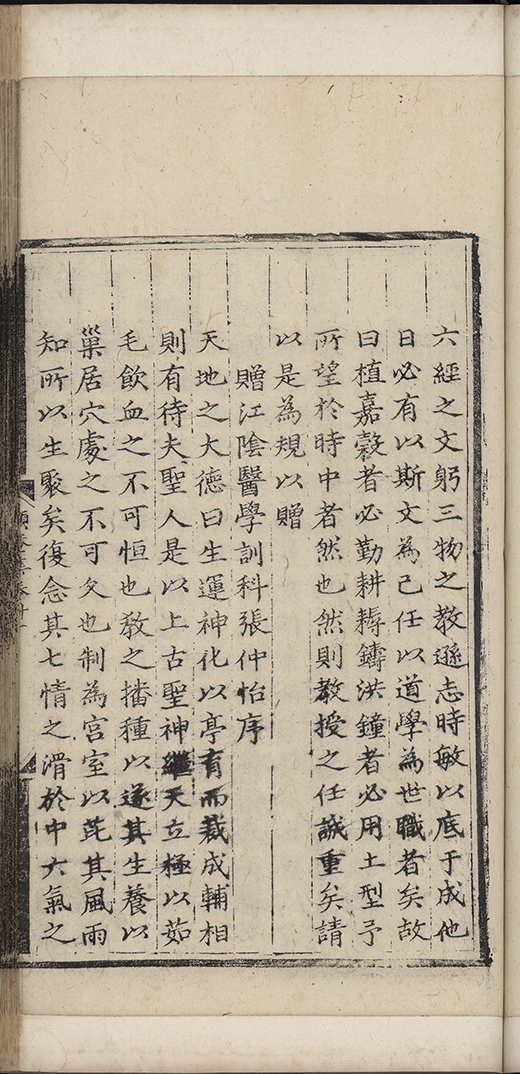 六經之文躬三物之教遜志時敏以底于成他
日必有以斯文為己任以道學為世職者矣故
曰植嘉穀者必勤耕耨鑄洪鐘者必用土型予
所望於時中者然也然則教授之任誠重矣請
以是為規以贈
贈江陰醫學訓科張仲怡序
天地之大德曰生運神化以亭育而裁成輔相
則有待夫聖人是以上古聖神繼天立極以茹
毛飲血之不可恒也教之播種以遂其生養以
巢居穴處之不可久也制為宮室以芘其風雨
知所以生聚矣復念其七情之滑於中六氣之